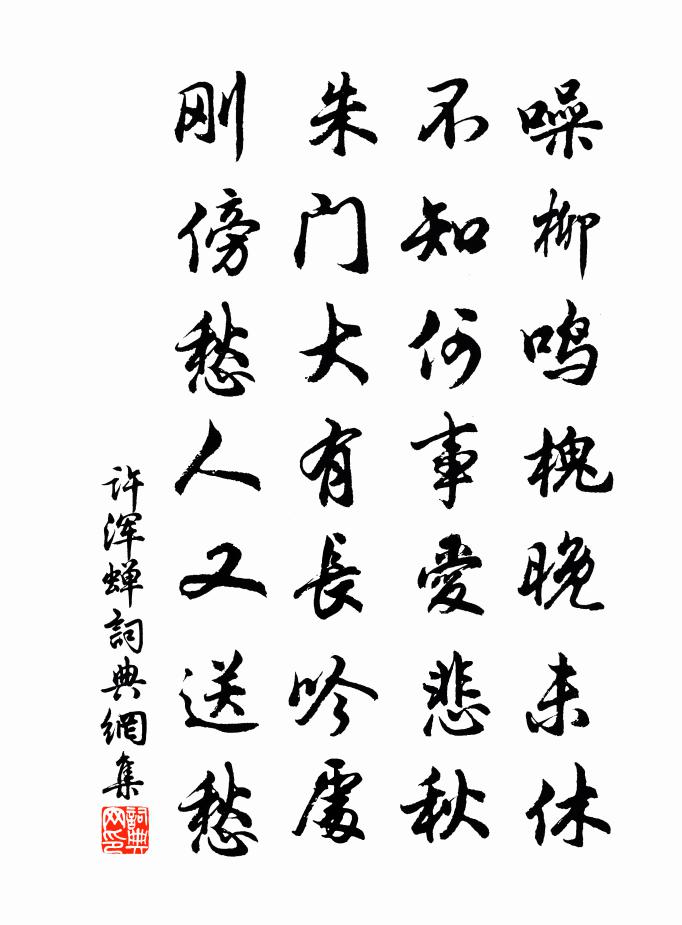 噪柳鸣槐晚未休
不知何事愛悲秋
朱门大有長吟處
刚傍愁人又送愁
许浑蝉詞典網集
詞典网印